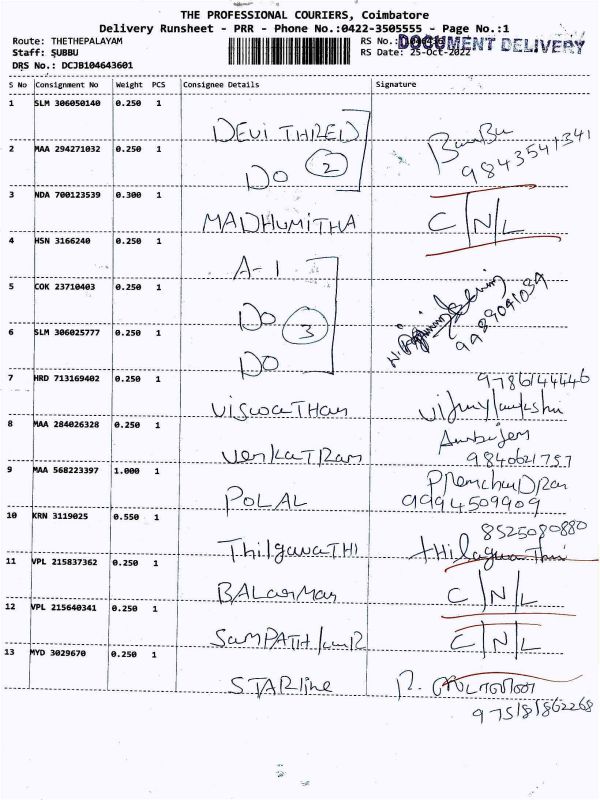 THE PROFESSIONAL COURIERS, Coimbatore
Delivery Runsheet - PRR - Phone No.:0422-3505555 - Page No.:1
Route: THETHEPALAYAM RS No.: DOCUMENT DELIVERY
Staff: SUBBU RS Date: 25-Oct-2022
DRS No.: DCJB104643601
S No Consignment No Weight PCS Consignee Details Signature
1 SLM 306050140 0.250 1 DEVI THREED
2 MAA 294271032 0.250 1 DO 2 9843541341
3 NDA 700123539 0.300 1 MADHUMITHA C/N/L
4 HSN 3166240 0.250 1 A-1
5 COK 23710403 0.250 1 DO 3
6 SLM 306025777 0.250 1 DO
7 HRD 713169402 0.250 1 ViSWaTHan 9786144446
8 MAA 284026328 0.250 1 VenkaTRam 9840621757
9 MAA 568223397 1.000 1 POLAL 9994509909
10 KRN 3119025 0.550 1 ThilgavaTHI 8525080880
11 VPL 215837362 0.250 1 BALarMan C/N/L
12 VPL 215640341 0.250 1 SamPATH C/N/L
13 MYD 3029670 0.250 1 STARline